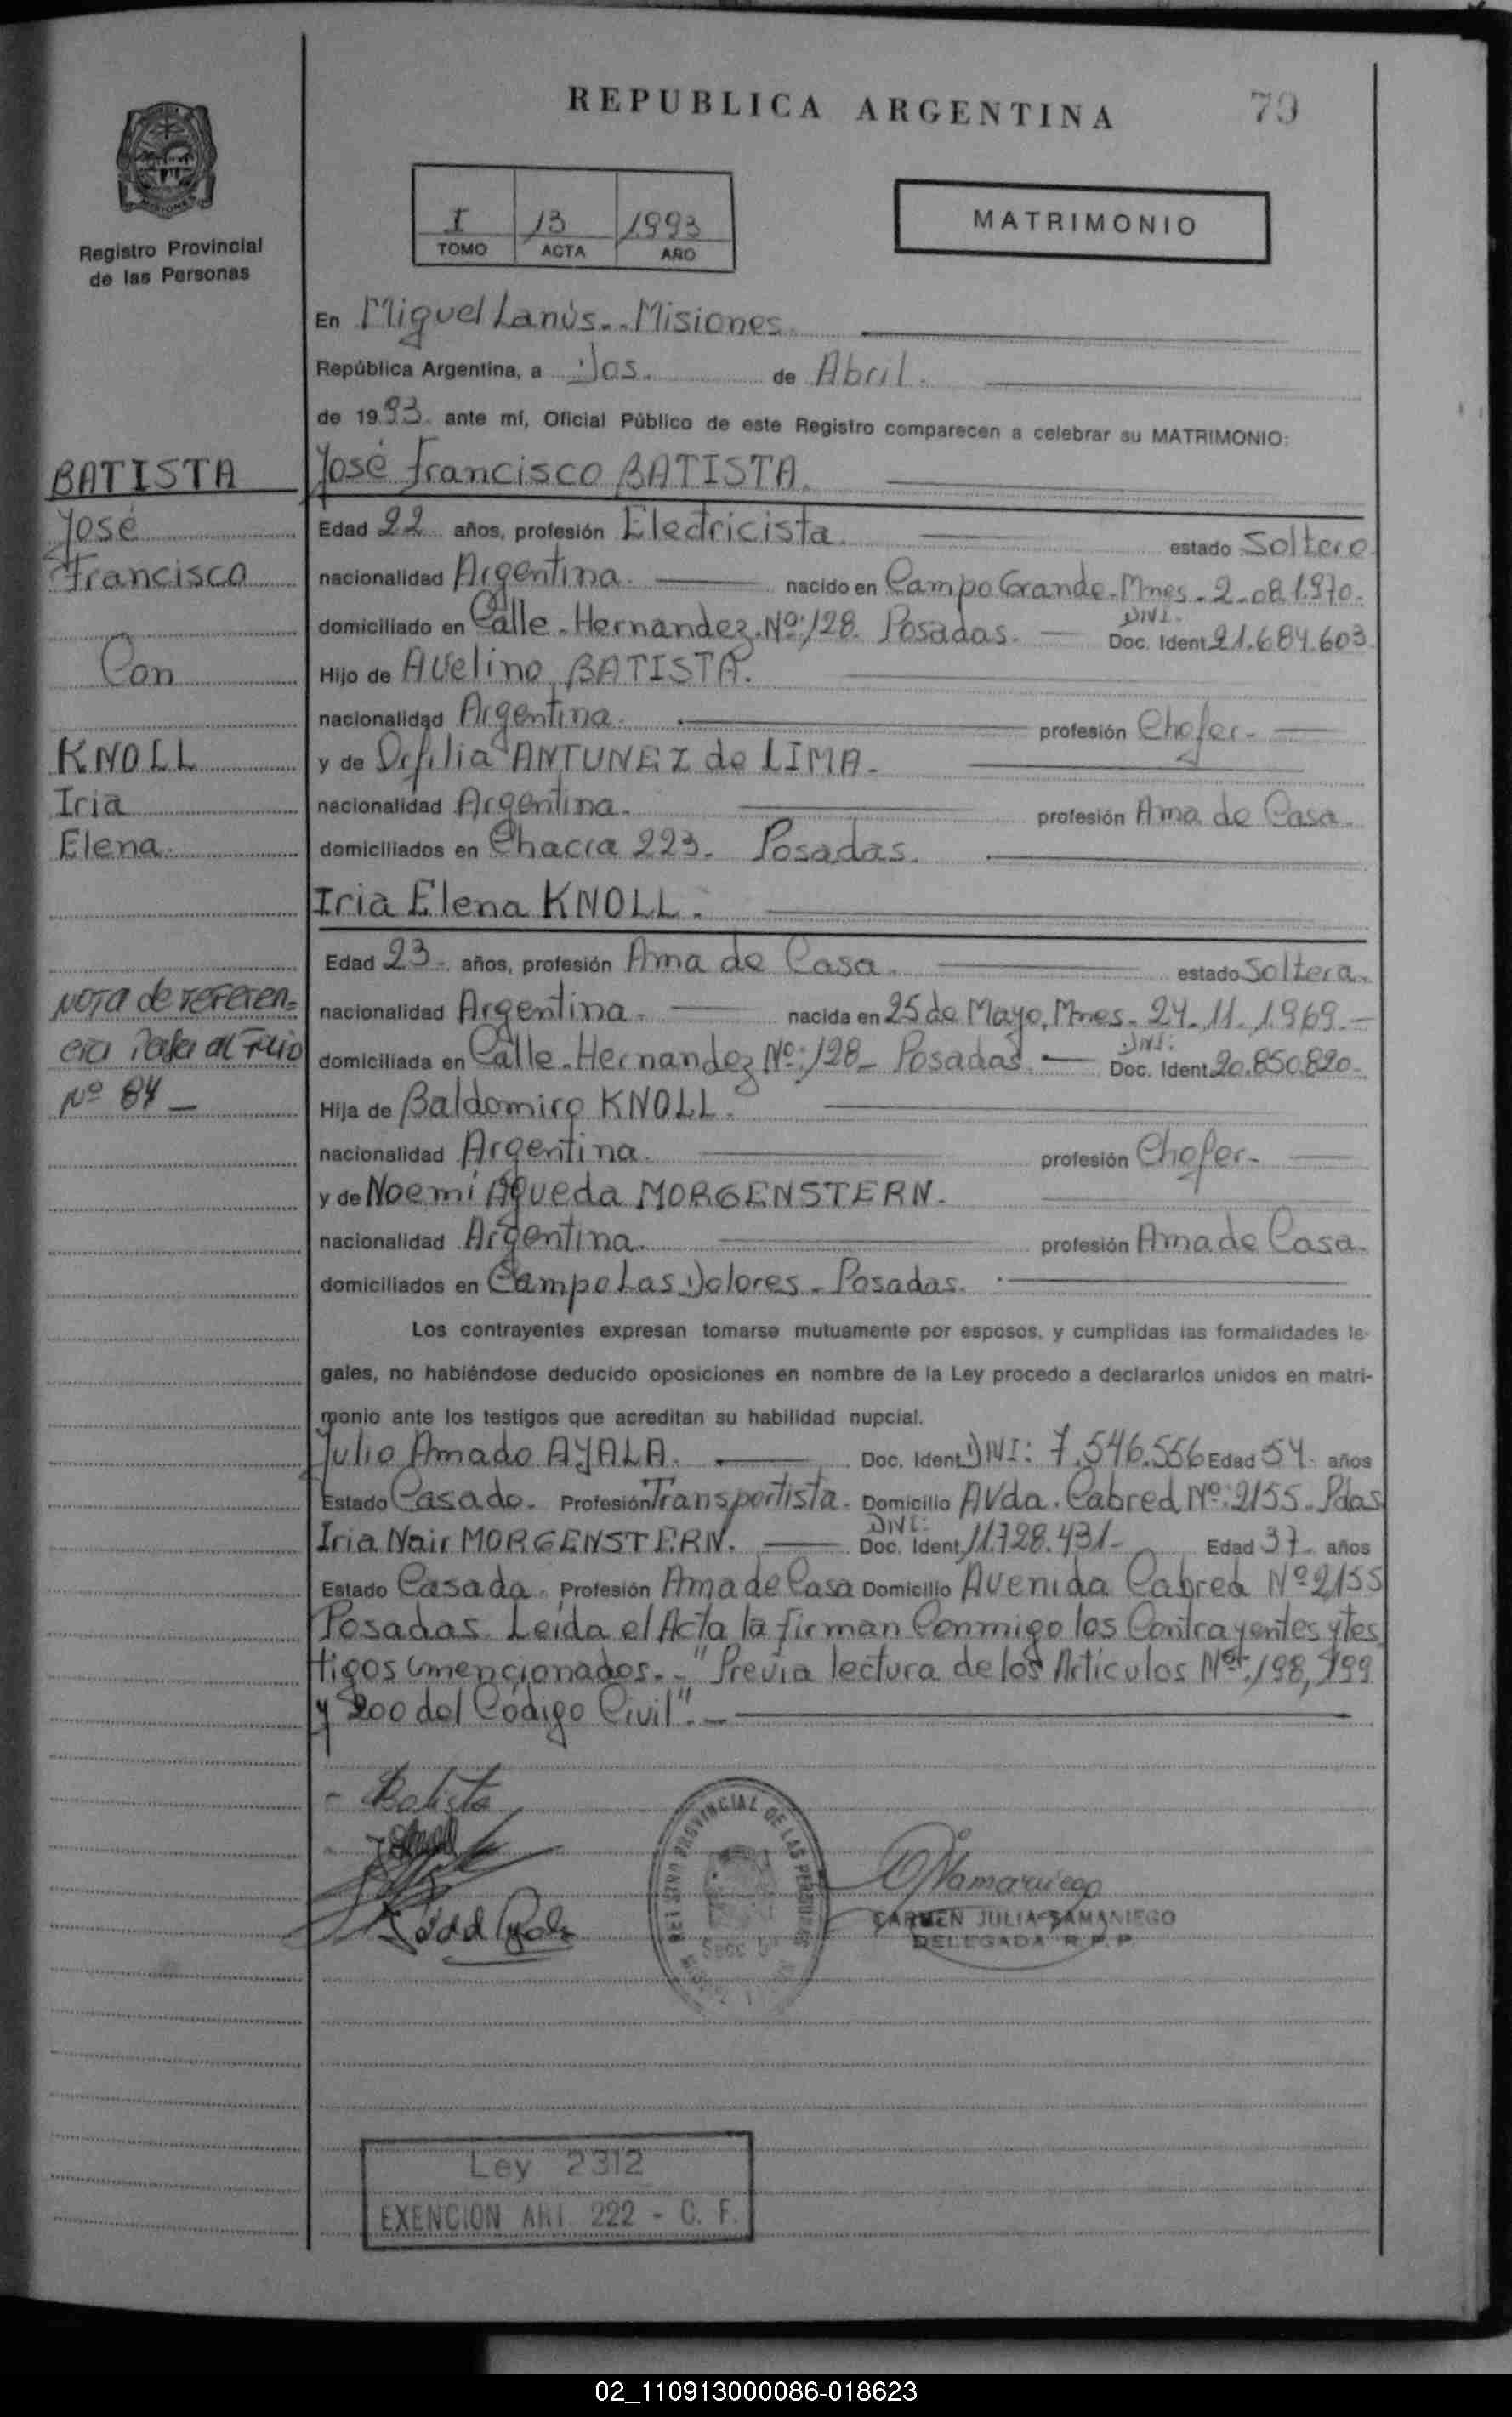 REPUBLICA ARGENTINA
79
Registro Provincial
de las Personas
I 13 1993
TOMO ACTA AÑO
MATRIMONIO
En Miguel Lanús.- Misiones.
República Argentina, a Dos. de Abril.
de 1993. ante mí, Oficial Público de este Registro comparecen a celebrar su MATRIMONIO:
BATISTA
José
Francisco
Con
KNOLL
Iria
Elena.
Nota de referen=
cia Pasa al Folio
Nº 84 -
José Francisco BATISTA.
Edad 22 años, profesión Electricista. estado Soltero
nacionalidad Argentina. nacido en Campo Grande-Mnes. 2-08.1.970.
domiciliado en Calle-Hernandez.Nº:128. Posadas. DNI. Doc. Ident. 21.684.603
Hijo de Avelino BATISTA.
nacionalidad Argentina. profesión Chofer.-
y de Orfilia ANTUNEZ de LIMA.-
nacionalidad Argentina. profesión Ama de Casa.
domiciliados en Chacra 223. Posadas.
Iria Elena KNOLL.
Edad 23- años, profesión Ama de Casa. estado Soltera.
nacionalidad Argentina. nacida en 25 de Mayo, Mnes. 24.11.1.969.-
domiciliada en Calle-Hernandez Nº:128- Posadas. DNI: Doc. Ident. 20.850.820-
Hija de Baldomiro KNOLL.
nacionalidad Argentina. profesión Chofer.-
y de Noemí Agueda MORGENSTERN.
nacionalidad Argentina. profesión Ama de Casa.
domiciliados en Campo Las Dolores - Posadas.
Los contrayentes expresan tomarse mutuamente por esposos, y cumplidas las formalidades le-
gales, no habiéndose deducido oposiciones en nombre de la Ley procedo a declararlos unidos en matri-
monio ante los testigos que acreditan su habilidad nupcial.
Julio Amado AYALA. Doc. Ident. DNI: 7.546.556 Edad 54. años
Estado Casado. Profesión Transportista. Domicilio Avda. Cabred Nº:2155. Pdas
Iria Nair MORGENSTERN. DNI: Doc. Ident. 11.728.431- Edad 37. años
Estado Casada. Profesión Ama de Casa Domicilio Avenida Cabred Nº2155
Posadas. Leída el Acta la firman Conmigo los Contrayentes y tes
tigos mencionados.-"Previa lectura de los Artículos Nos:198, 199
y 200 del Código Civil".-
- Batista
REGISTRO PROVINCIAL DE LAS PERSONAS
CARMEN JULIA SAMANIEGO
DELEGADA R. P. P.
Ley 2312
EXENCION ART. 222 - C. F.
02_110913000086-018623